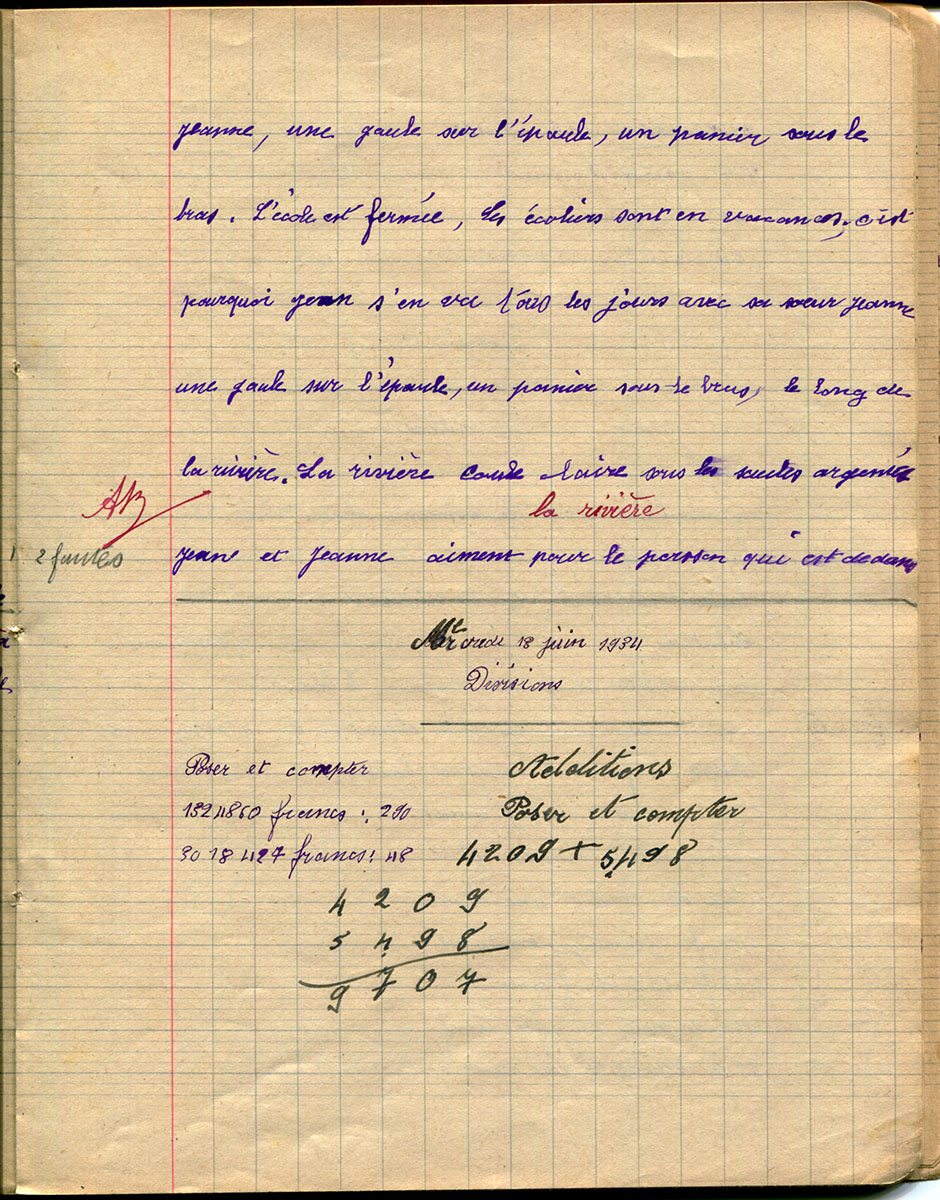 Jeanne, une gaule sur l'épaule, un panier sous le
bras. L'école est fermée, les écoliers sont en vacances, c'est
pourquoi Jean s'en va tous les jours avec sa sœur Jeanne
une gaule sur l'épaule, un panier sous le bras, le long de
la rivière. La rivière coule claire sous les saules argentés
AB
la rivière
2 fautes
Jean et Jeanne aiment pour le poisson qui est dedans
Mercredi 13 juin 1934
Divisions
Poser et compter
1324860 francs : 290
3018427 francs : 48
Additions
Poser et compter
4209 + 5498
4 2 0 9
5 4 9 8
9 7 0 7